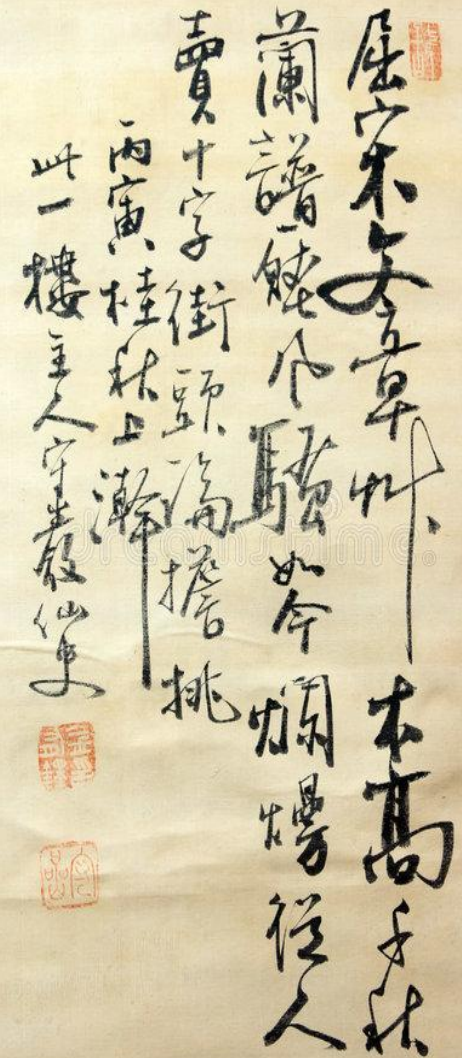 屈宋文章艸木高千秋
蘭譜風騷如今爛熳從人
賣十字街頭論擔挑
丙寅桂秋上澣
此一樓主人守仙史